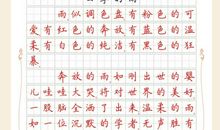 雨似调色盘有粉色的可
爱有红色的奔放有蓝色的温
柔有白色的纯洁有黑色的狂
暴
奔放的雨如刚出世的婴
儿哇哇大哭将对世界的美好
一股脑全洒了出来温柔的雨
如一位沉默的学者无声胜有